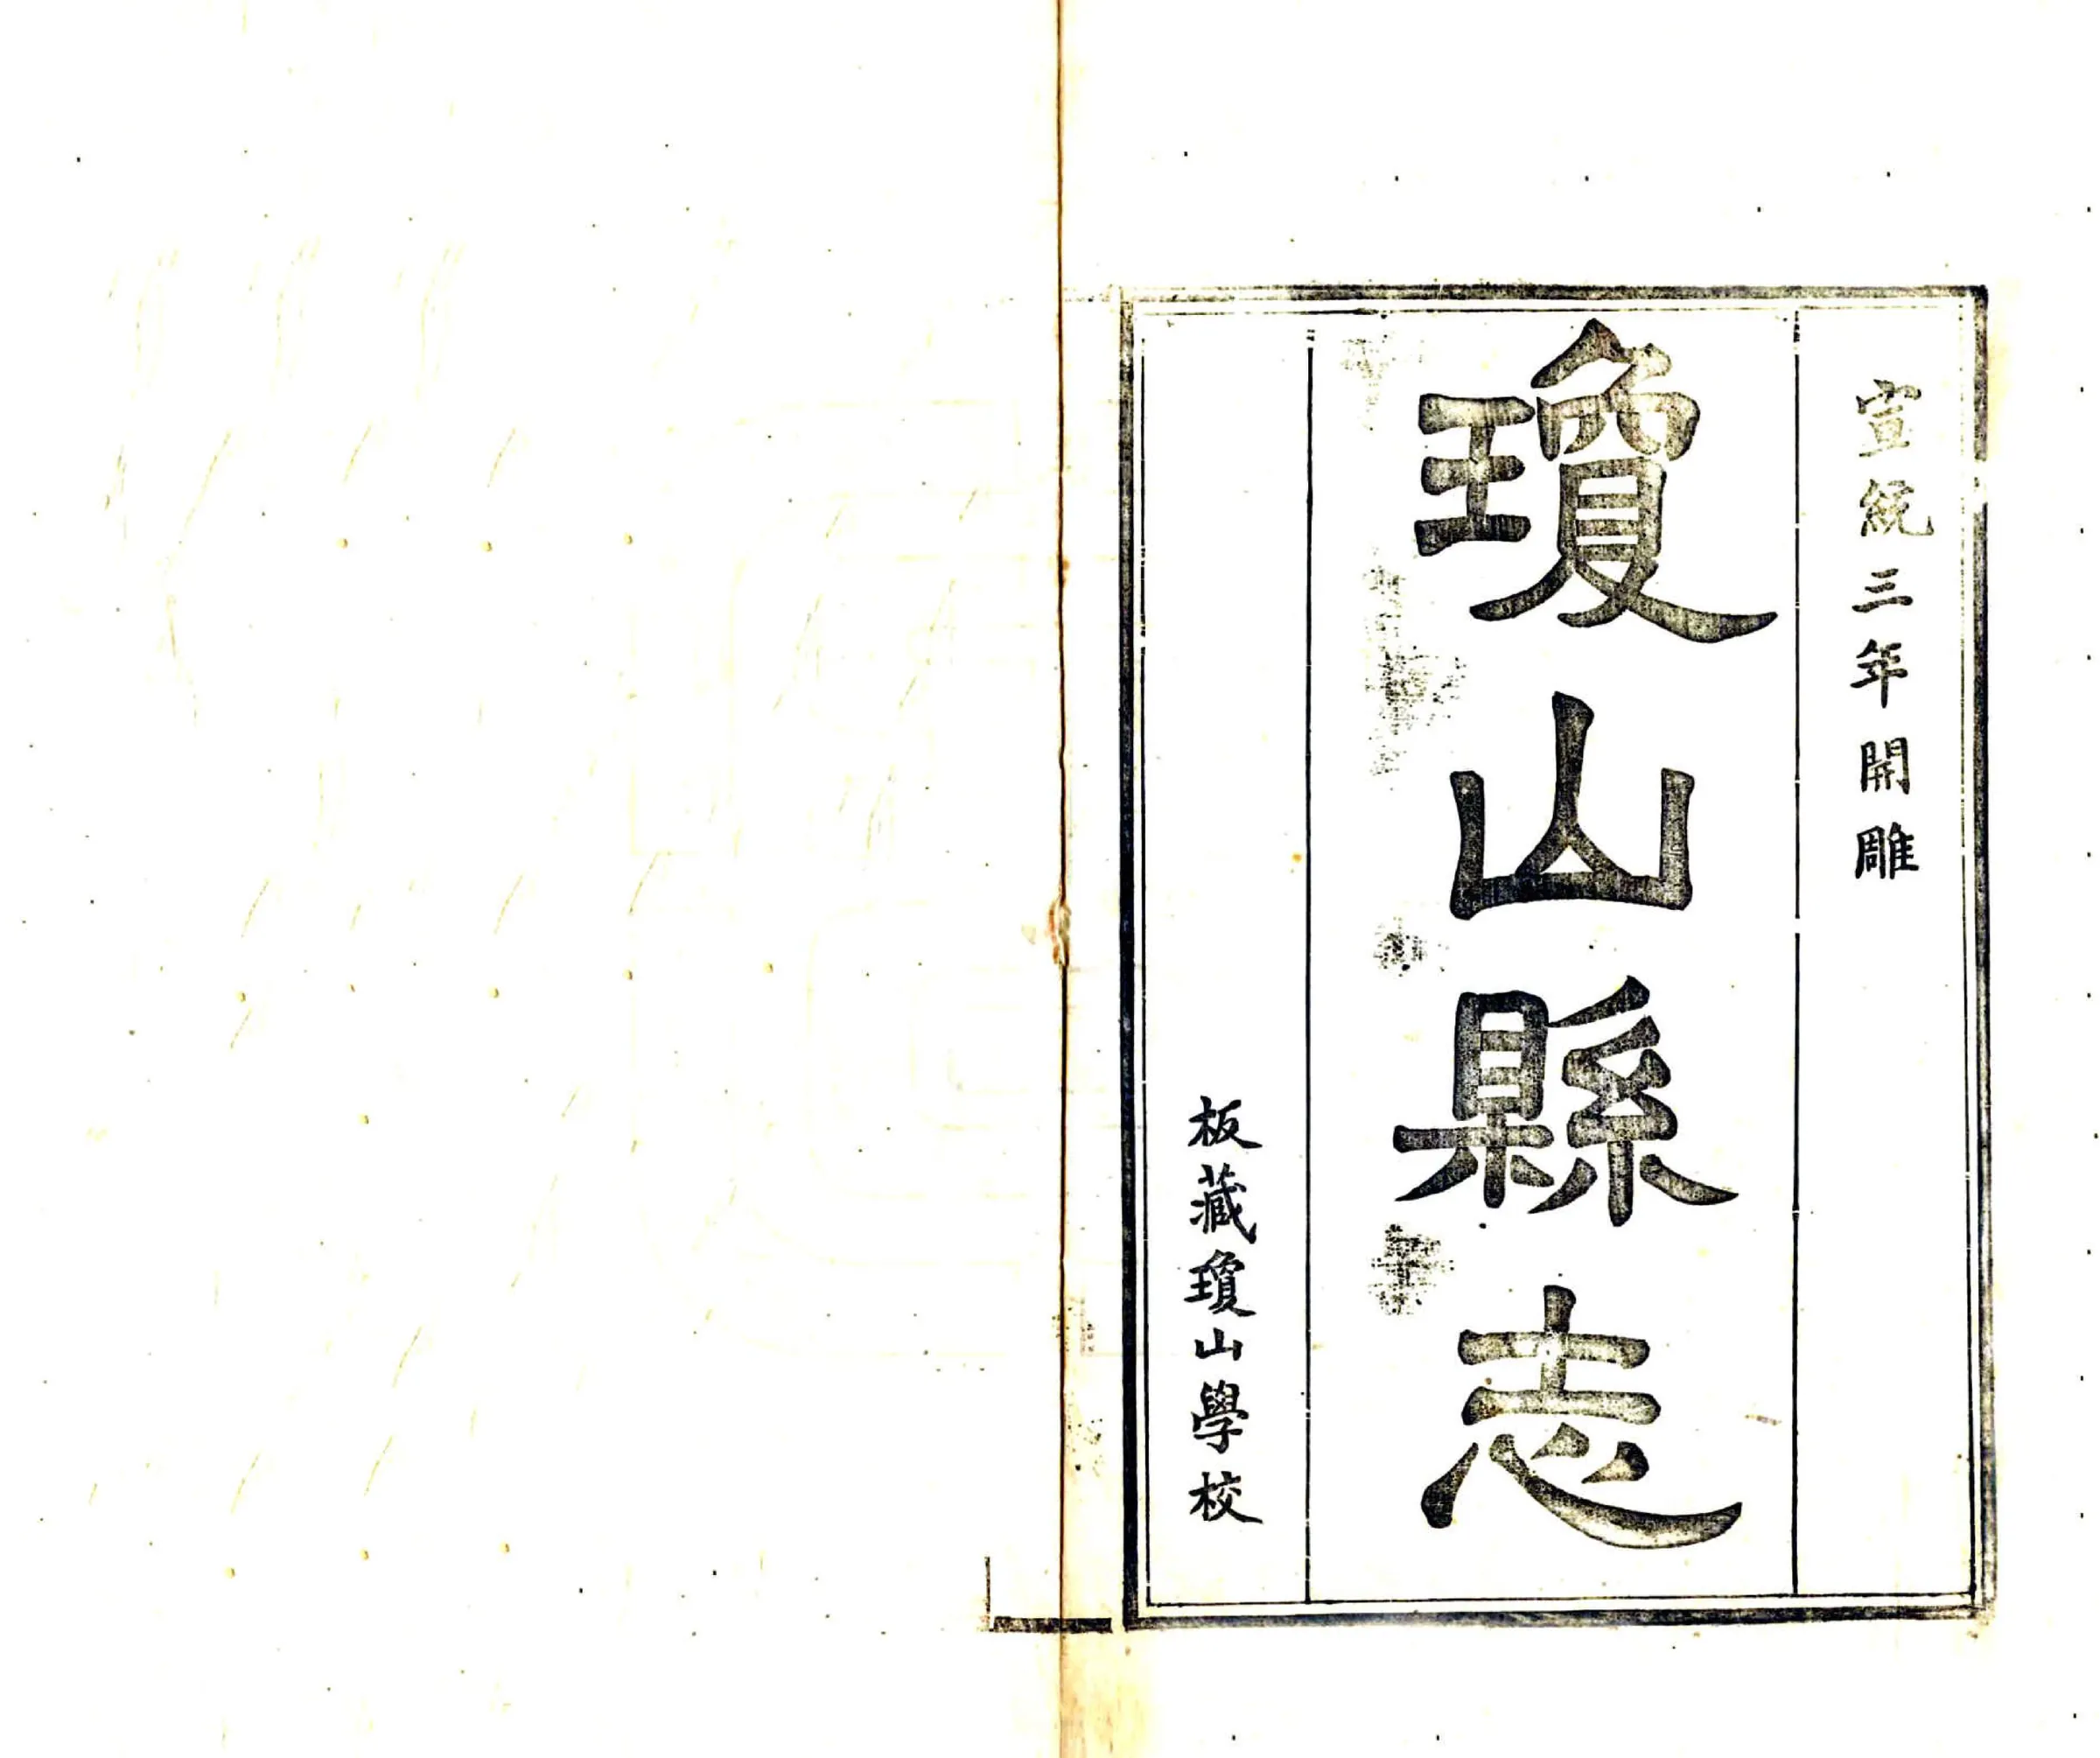 宣統三年開雕
瓊山縣志
板藏瓊山學校